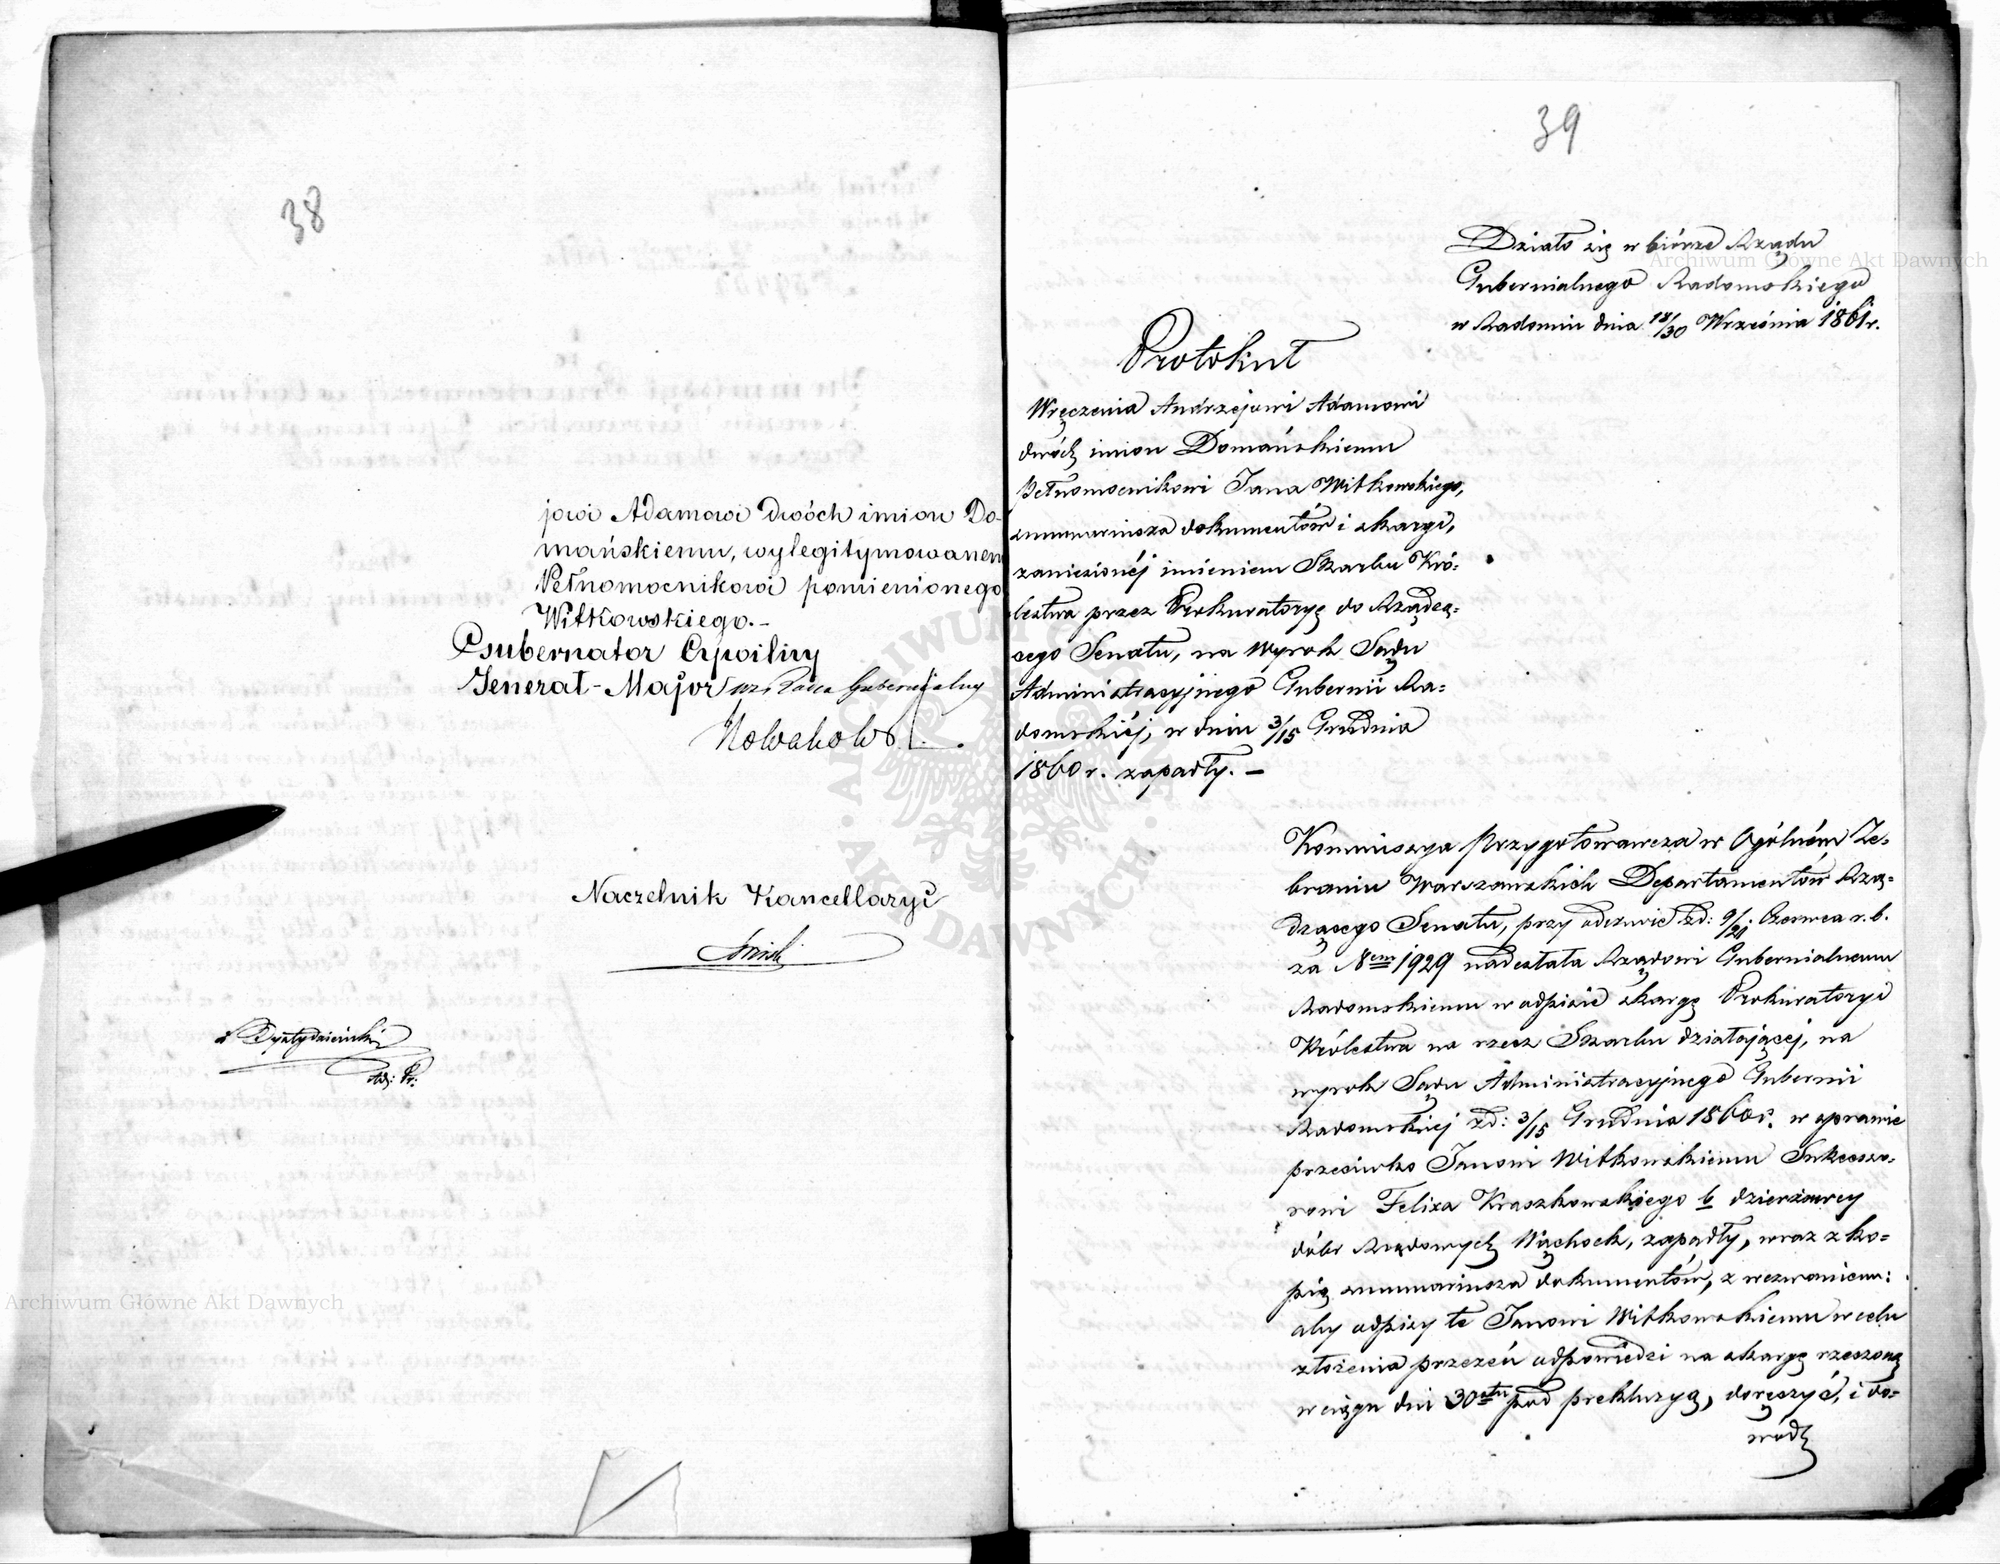 38
jowi Adamowi dwóch imion Do-
mańskiemu, wylegitymowanem
Pełnomocnikowi pomienionego
Witkowskiego. –
Gubernator Cywilny
Generał-Major wz. Radca Gubernialny
Nowakows
Naczelnik Kancellaryi
Adj: Pr:
39
Działo się w biórze Rządu
Gubernialnego Radomskiego
w Radomiu dnia 18/30 Września 1861 r.
Protokuł
Wręczenia Andrzejowi Adamowi
dwóch imion Domańskiemu
Pełnomocnikowi Jana Witkowskiego,
summariusza dokumentów i skargi,
zaniesionéj imieniem Skarbu Kró-
lestwa przez Prokuratoryę do Rządzą-
cego Senatu, na Wyrok Sądu
Administracyjnego Gubernii Ra-
domskiéj, w dniu 3/15 Grudnia
1860 r. zapadły. –
Kommissya Przygotowawcza w Ogólném Ze-
braniu Warszawskich Departamentów Rzą-
dzącego Senatu, przy odezwie zd: 9/21 Czerwca r. b.
za Nem 1929 nadesłała Rządowi Gubernialnemu
Radomskiemu w odpisie skargę Prokuratoryi
Królestwa na rzecz Skarbu działającéj, na
wyrok Sądu Administracyjnego Gubernii
Radomskiéj zd: 3/15 Grudnia 1860 r. w sprawie
przeciwko Janowi Witkowskiemu Sukcesso-
rowi Felixa Kraszkowskiego b dzierżawcy
dóbr Rządowych Wąchock, zapadły, wraz z ko-
pią summariusza dokumentów, z wezwaniem:
aby odpisy te Janowi Witkowskiemu w celu
złożenia przezeń odpowiedzi na skargę rzeczoną
w ciągu dni 30stu pod prekluzyą, doręczyć, i do-
wód
Archiwum Główne Akt Dawnych
Archiwum Główne Akt Dawnych
ARCHIWUM GŁÓWNE AKT DAWNYCH